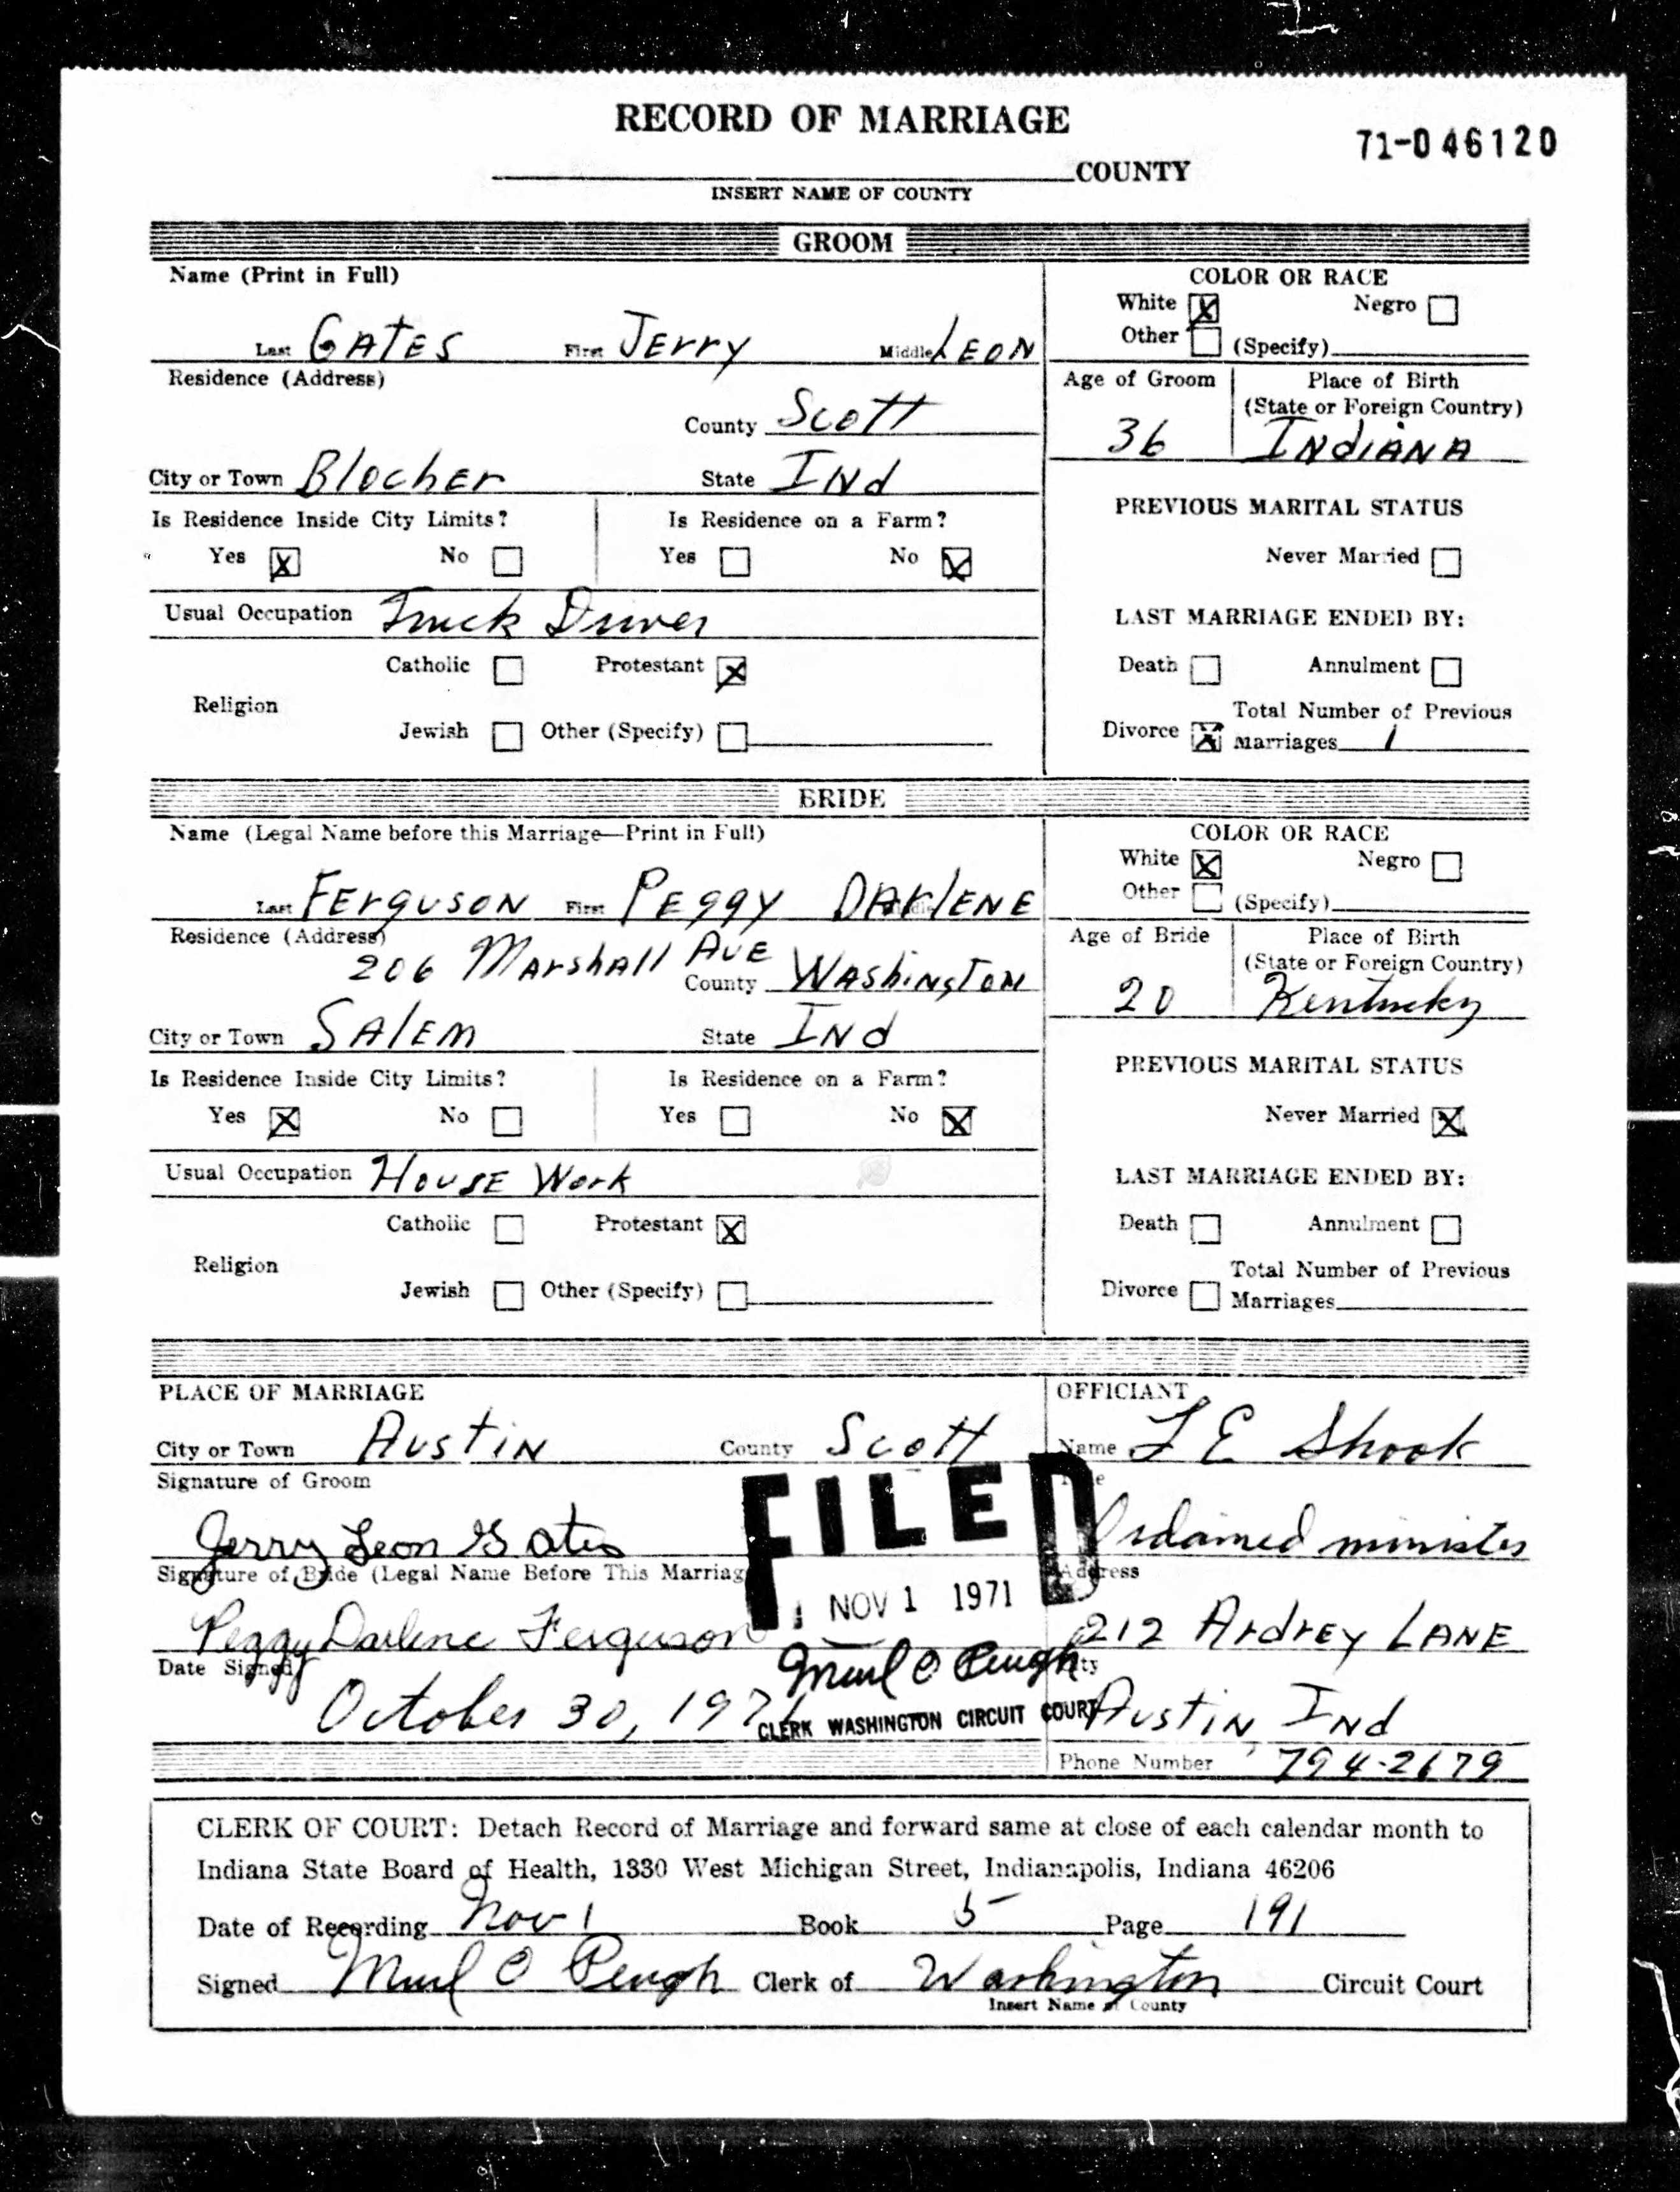 RECORD OF MARRIAGE
71-046120
COUNTY
INSERT NAME OF COUNTY
GROOM
Name (Print in Full)
Last GATES First JErry Middle LEON
COLOR OR RACE
White X Negro
Other (Specify)
Residence (Address)
County Scott
City or Town BlochEr State INd
Age of Groom 36
Place of Birth
(State or Foreign Country)
INdIANA
Is Residence Inside City Limits? Is Residence on a Farm?
Yes X No Yes No X
PREVIOUS MARITAL STATUS
Never Married
Usual Occupation Truck Driver
LAST MARRIAGE ENDED BY:
Catholic Protestant X
Death Annulment
Religion
Jewish Other (Specify)
Total Number of Previous
Divorce X Marriages 1
BRIDE
Name (Legal Name before this Marriage—Print in Full)
Last FErguson First PEggy DARlENE
COLOR OR RACE
White X Negro
Other (Specify)
Residence (Address)
206 MArshAll AvE
County WAshiNgTON
City or Town SAlEm State INd
Age of Bride 20
Place of Birth
(State or Foreign Country)
Kentucky
Is Residence Inside City Limits? Is Residence on a Farm?
Yes X No Yes No X
PREVIOUS MARITAL STATUS
Never Married X
Usual Occupation HousE Work
LAST MARRIAGE ENDED BY:
Catholic Protestant X
Death Annulment
Religion
Jewish Other (Specify)
Total Number of Previous
Divorce Marriages
PLACE OF MARRIAGE
City or Town AustiN County Scott
OFFICIANT
Name L E Shook
Signature of Groom
Jerry Leon Gates
Ordained minister
FILED
NOV 1 1971
Signature of Bride (Legal Name Before This Marriag
Peggy Darlene Ferguson
Address
212 ArdrEy LANE
Date Signed
October 30, 1971
Murl O Peugh
CLERK WASHINGTON CIRCUIT COURT
City
AustiN, INd
Phone Number 794-2679
CLERK OF COURT: Detach Record of Marriage and forward same at close of each calendar month to
Indiana State Board of Health, 1330 West Michigan Street, Indianapolis, Indiana 46206
Date of Recording Nov 1 Book 5 Page 191
Signed Murl O Peugh Clerk of Washington Circuit Court
Insert Name of County